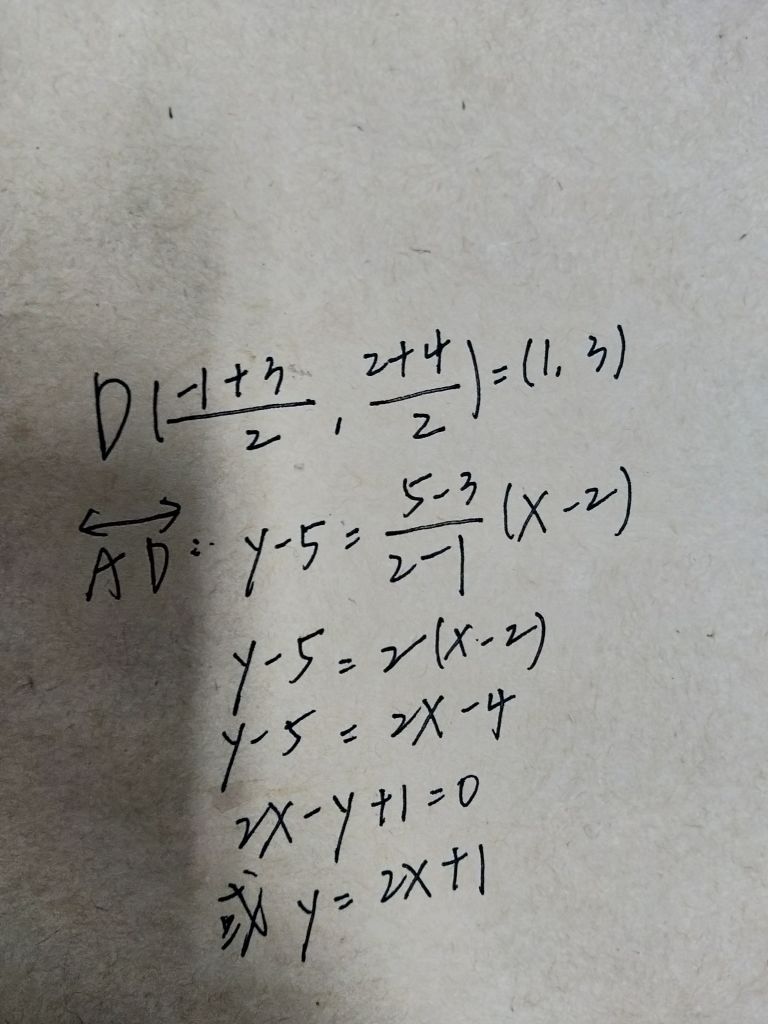 D(\frac{-1+3}{2}, \frac{2+4}{2})=(1, 3)
\overleftrightarrow{AD}: y-5=\frac{5-3}{2-1}(x-2)
y-5=2(x-2)
y-5=2x-4
2x-y+1=0
或 y=2x+1